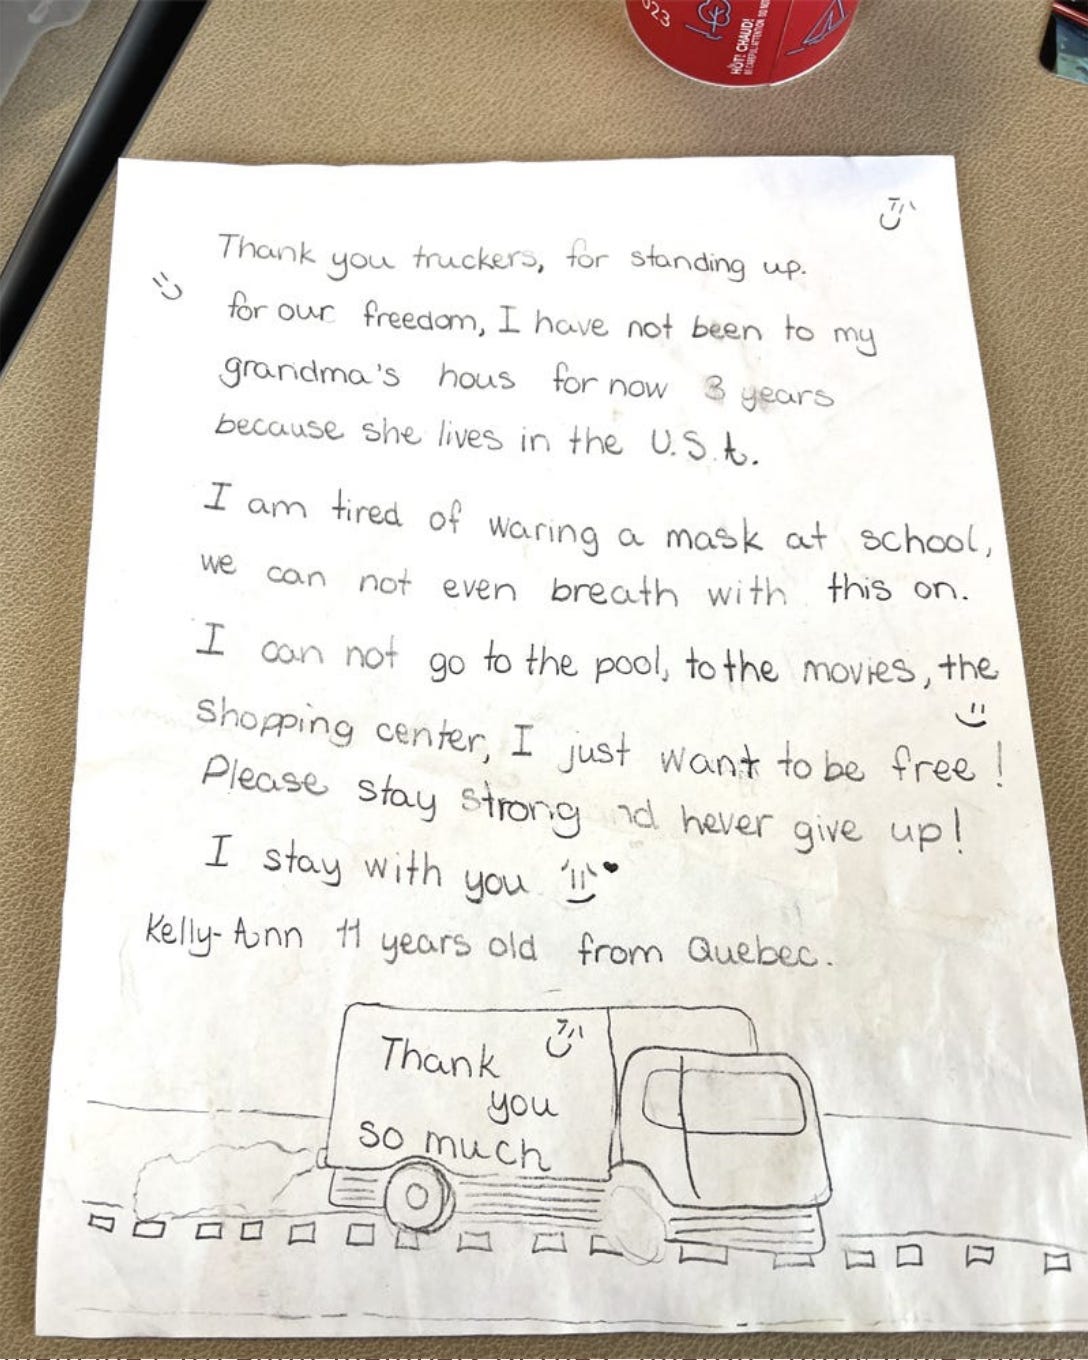 023
HOT! CHAUD!
Thank you truckers, for standing up.
for our freedom, I have not been to my
grandma's hous for now 3 years
because she lives in the U.S.A.
I am tired of waring a mask at school,
we can not even breath with this on.
I can not go to the pool, to the movies, the
shopping center, I just want to be free!
Please stay strong nd never give up!
I stay with you
Kelly-Ann 11 years old from Quebec.
Thank
you
so much